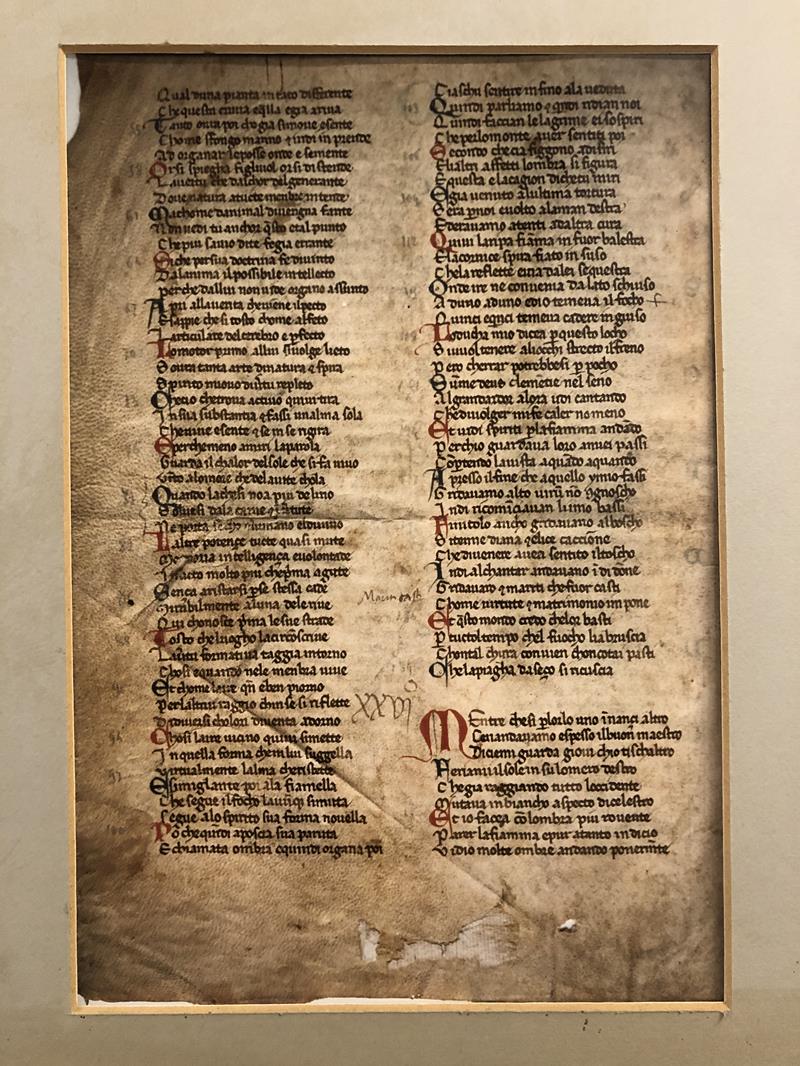 Qual duna pianta in tato differente
Che questa enuia eqlla egia ariua
Tanto oura poi che gia simoue esente
Chome sfongo marino & indi in prende
Ad organar leposse onde e semente
Or si spiegha figluiol or si di stende
Lauertu che dalchor delgenerante
Doue natura atucte menbre intende
Ma chome danimal diuengha fante
Non uedi tu anchor qsto etal punto
Che piu sauio dite fegia errante
Si che persua doctrina fe diuinto
Dalanima il possibile intellecto
perche dallui non uide organo assunto
Apri alla uenta che uiene il pecto
E sappie che si tosto chome alfeto
Larticulare del cerebro e pfecto
Lo motor primo allui si uolge lieto
Soura tanta arte dinatura & spira
Spirito nuouo diuertu repleto
Che cio che troua actiuo quiui tira
In sua substantia & fassi unalma sola
Che uiue esente & se in se rigira
E perche meno amiri la parola
Guarda il chalor del sole che si fa uino
Giūto alomore che dela uite chola
Quando lachesi noa piu delino
Soluesi dala carne
Ne porta se cho lhumano eldiuino
Laltre potençe tucte quasi mute
Memoria intelligença euolontade
In acto molto piu che pma agute
Sença aristarsi p se stessa cade
Mirabilmente aluna dele riue
Qui chonosce pma le sue strade
Tosto che luogho la circōscriue
La uirtu formatiua raggia intorno
Chosi equando nele menbra uiue
Et chome laire qñ eben piorno
Per laltrui raggio chen se si riflette
Di diuersi cholori diuenta adorno
Chosi laire uicino quiui si mette
In quella forma che in lui suggella
Virtualmente lalma che ristette
E simigliante poi ala fiamella
Che segue il focho lauunqz simuta
Segue alo spirito sua forma nouella
Po che quindi aposcia sua paruta
E chiamata ombra equindi organa poi
Ciaschū sentire in fino ala ueduta
Quindi parliamo & qndi ridian noi
Quindi faccian le lagrime ei sospiri
Che per lo monte auer sentiti poi
Secondo che cia figgono adisiri
E gli altri affetti lombra si figura
E questa e la cagion di che tu miri
E gia uenuto alultima tortura
Sera pnoi euolto ala man destra
Ed erauamo atenti ad altra cura
Quiui la ripa fiāma in fuor balestra
E la cornice spira fiato in suso
Che la reflette euia dalei sequestra
Onde ire ne conuenia da lato schiuso
Aduno aduno ed io temea il focho
Quinci eqnci temeua cadere ingiuso
Lo ducha mio dicea p questo locho
Si uuol tenere aliocchi strecto il freno
Pero cherrar potrebbesi p pocho
Sūme deus clemētie nel seno
Al grande ardor alora udi cantando
Che di uolger mi fe caler no meno
Et uidi spiriti p la fiamma andādo
Perchio guardaua loro amiei passi
Cōpartendo la uista aquādo aquando
Apresso il fine che aquello ymno fassi
Gridauamo alto uirū nō cognoscho
Indi ricominciauan lino bassi
Finitolo anche gridauano al boscho
Si tenne diana & elice caccione
Che diuenere auea sentito il toscho
Indi al chantar andauano i di done
Gridauano & mariti che fuor casti
Chome uirtute & matrimonio im pone
Et qsto mondo credo che lor basti
P tucto l tempo chel fuocho li abruscia
Chontal chura conuien chon cotai pasti
Che la piagha da seço si ricuscia
XXVI
Mentre che si p loilo uno īnançi altro
Cen andauamo espesso il buon maestro
Diceni guarda gioui chio ti schaltro
Feriami il sole in su lomero destro
Che gia raggiando tutto loccidente
Mutaua in biancho aspecto di celestro
Et io facea cō lombra piu rouente
Parer la fiamma epur atanto indicio
Vidio molte ombre andando poner mte